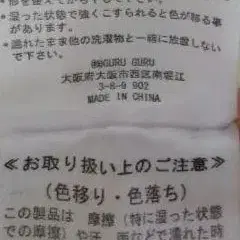 ・形を整えてから干して下さい。
・湿った状態で強くこすられると色が移る事
があります。
・濡れたまま他の洗濯物と一緒に放置しない
で下さい。
GURU GURU
大阪府大阪市西区南堀江
3-8-9 902
MADE IN CHINA
≪お取り扱い上のご注意≫
(色移り・色落ち)
この製品は 摩擦(特に湿った状態
での摩擦)や汗、雨などで濡れた時